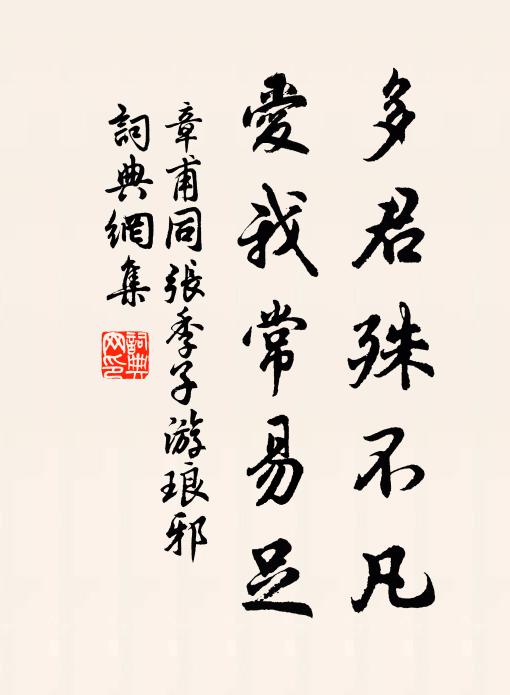 多君殊不凡
愛我常易足
章甫同張季子游琅邪
詞典網集
詞典網印